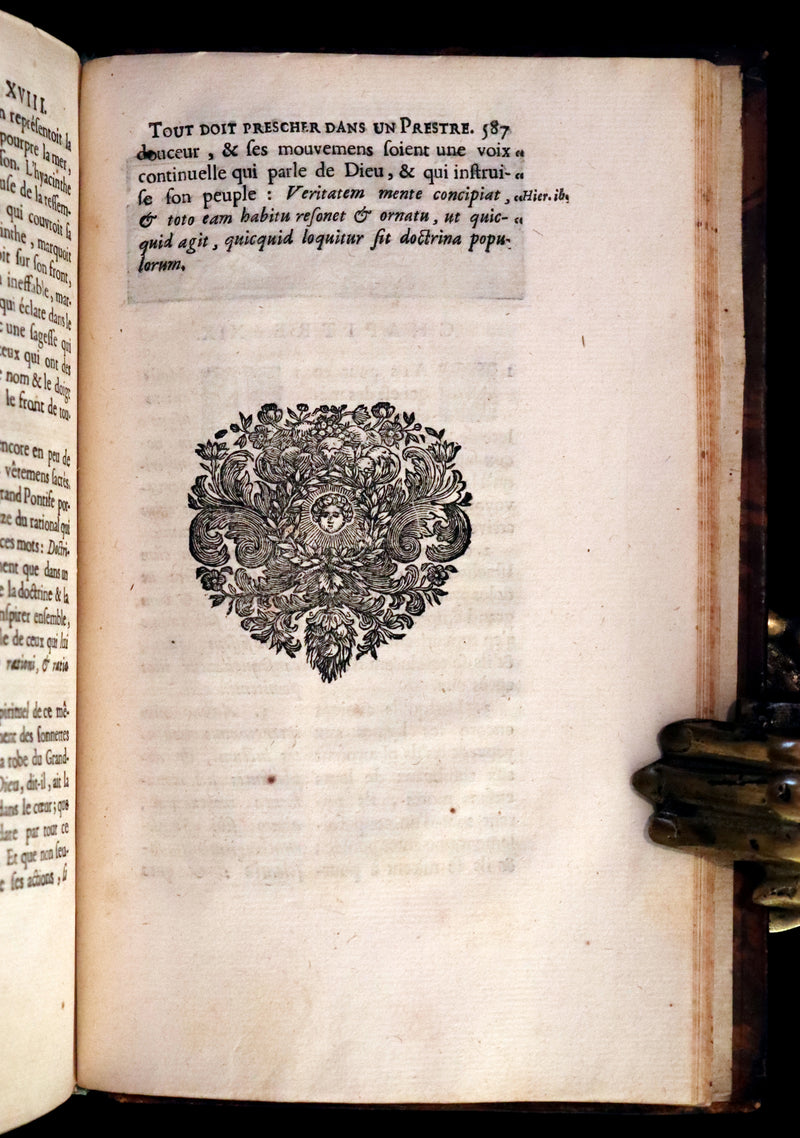 XVIII.
représentoit la
pourpre la mer,
L'hyacinthe
de la ressem-
qui couvroit sa
marquoit
sur son front,
ineffable, mar-
qui éclare dans le
une sagesse qui
ceux qui ont des
nom & le doigt
le front de tou-
encore en peu de
vêtemens sacrés.
Grand Pontife por-
du rational qui
ces mots : Doctri-
que dans un
la doctrine & la
inspirer ensemble,
de ceux qui lui
rationi, & ratio
spirituel de ce mê-
des sonnettes
la robe du Grand-
Dieu, dit-il, ait la
dans le cœur ; que
par tout ce
Et que non seu-
ses actions, si
TOUT DOIT PRESCHER DANS UN PRESTRE. 587
douceur , & ſes mouvemens ſoient une voix «
continuelle qui parle de Dieu , & qui inſtrui- «
ſe ſon peuple : Veritatem mente concipiat , « Hier. ib.
& toto eam habitu reſonet & ornatu , ut quic- «
quid agit , quicquid loquitur ſit doctrina popu-
lorum.